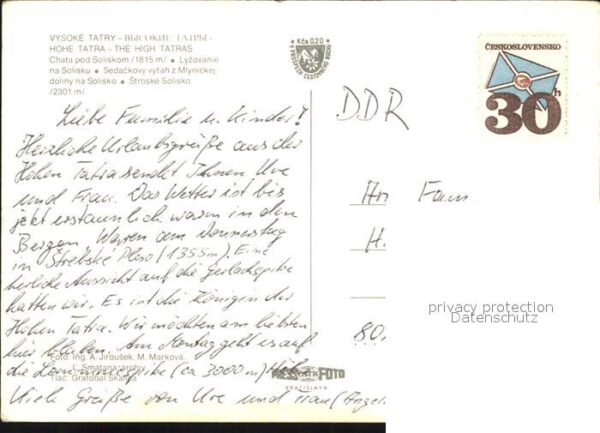 VYSOKÉ TATRY – ВЫСОКИЕ ТАТРЫ –
HOHE TATRA – THE HIGH TATRAS
Chata pod Soliskom /1815 m/ • Lyžovanie
na Solisku • Sedačkový výťah z Mlynickej
doliny na Solisko • Štrbské Solisko
/2301 m/
Kčs 0,20
ČESKOSLOVENSKO
30h
DDR
Liebe Familie u. Kinder!
Herzliche Urlaubsgrüße aus der
Hohen Tatra sendet Ihnen Uwe
und Frau. Das Wetter ist bis
jetzt erstaunlich warm in den
Bergen. Waren am Donnerstag
in Štrbské Pleso (1355m). Eine
herliche Aussicht auf die Gerlachspitze
hatten wir. Es ist die Königen der
Hohen Tatra. Wir möchten am liebsten
hier bleiben. Am Montag geht es auf
die Lomnitzspitze (ca 3000 m)
Viele Grüße von Uwe und Frau (Angel
An Fam.
H.
80.
privacy protection
Datenschutz
Foto: Ing. A. Jiroušek, M. Marková,
L. Smetana-archív
Tlač: Grafobal Skalica
FOTO
BRATISLAVA